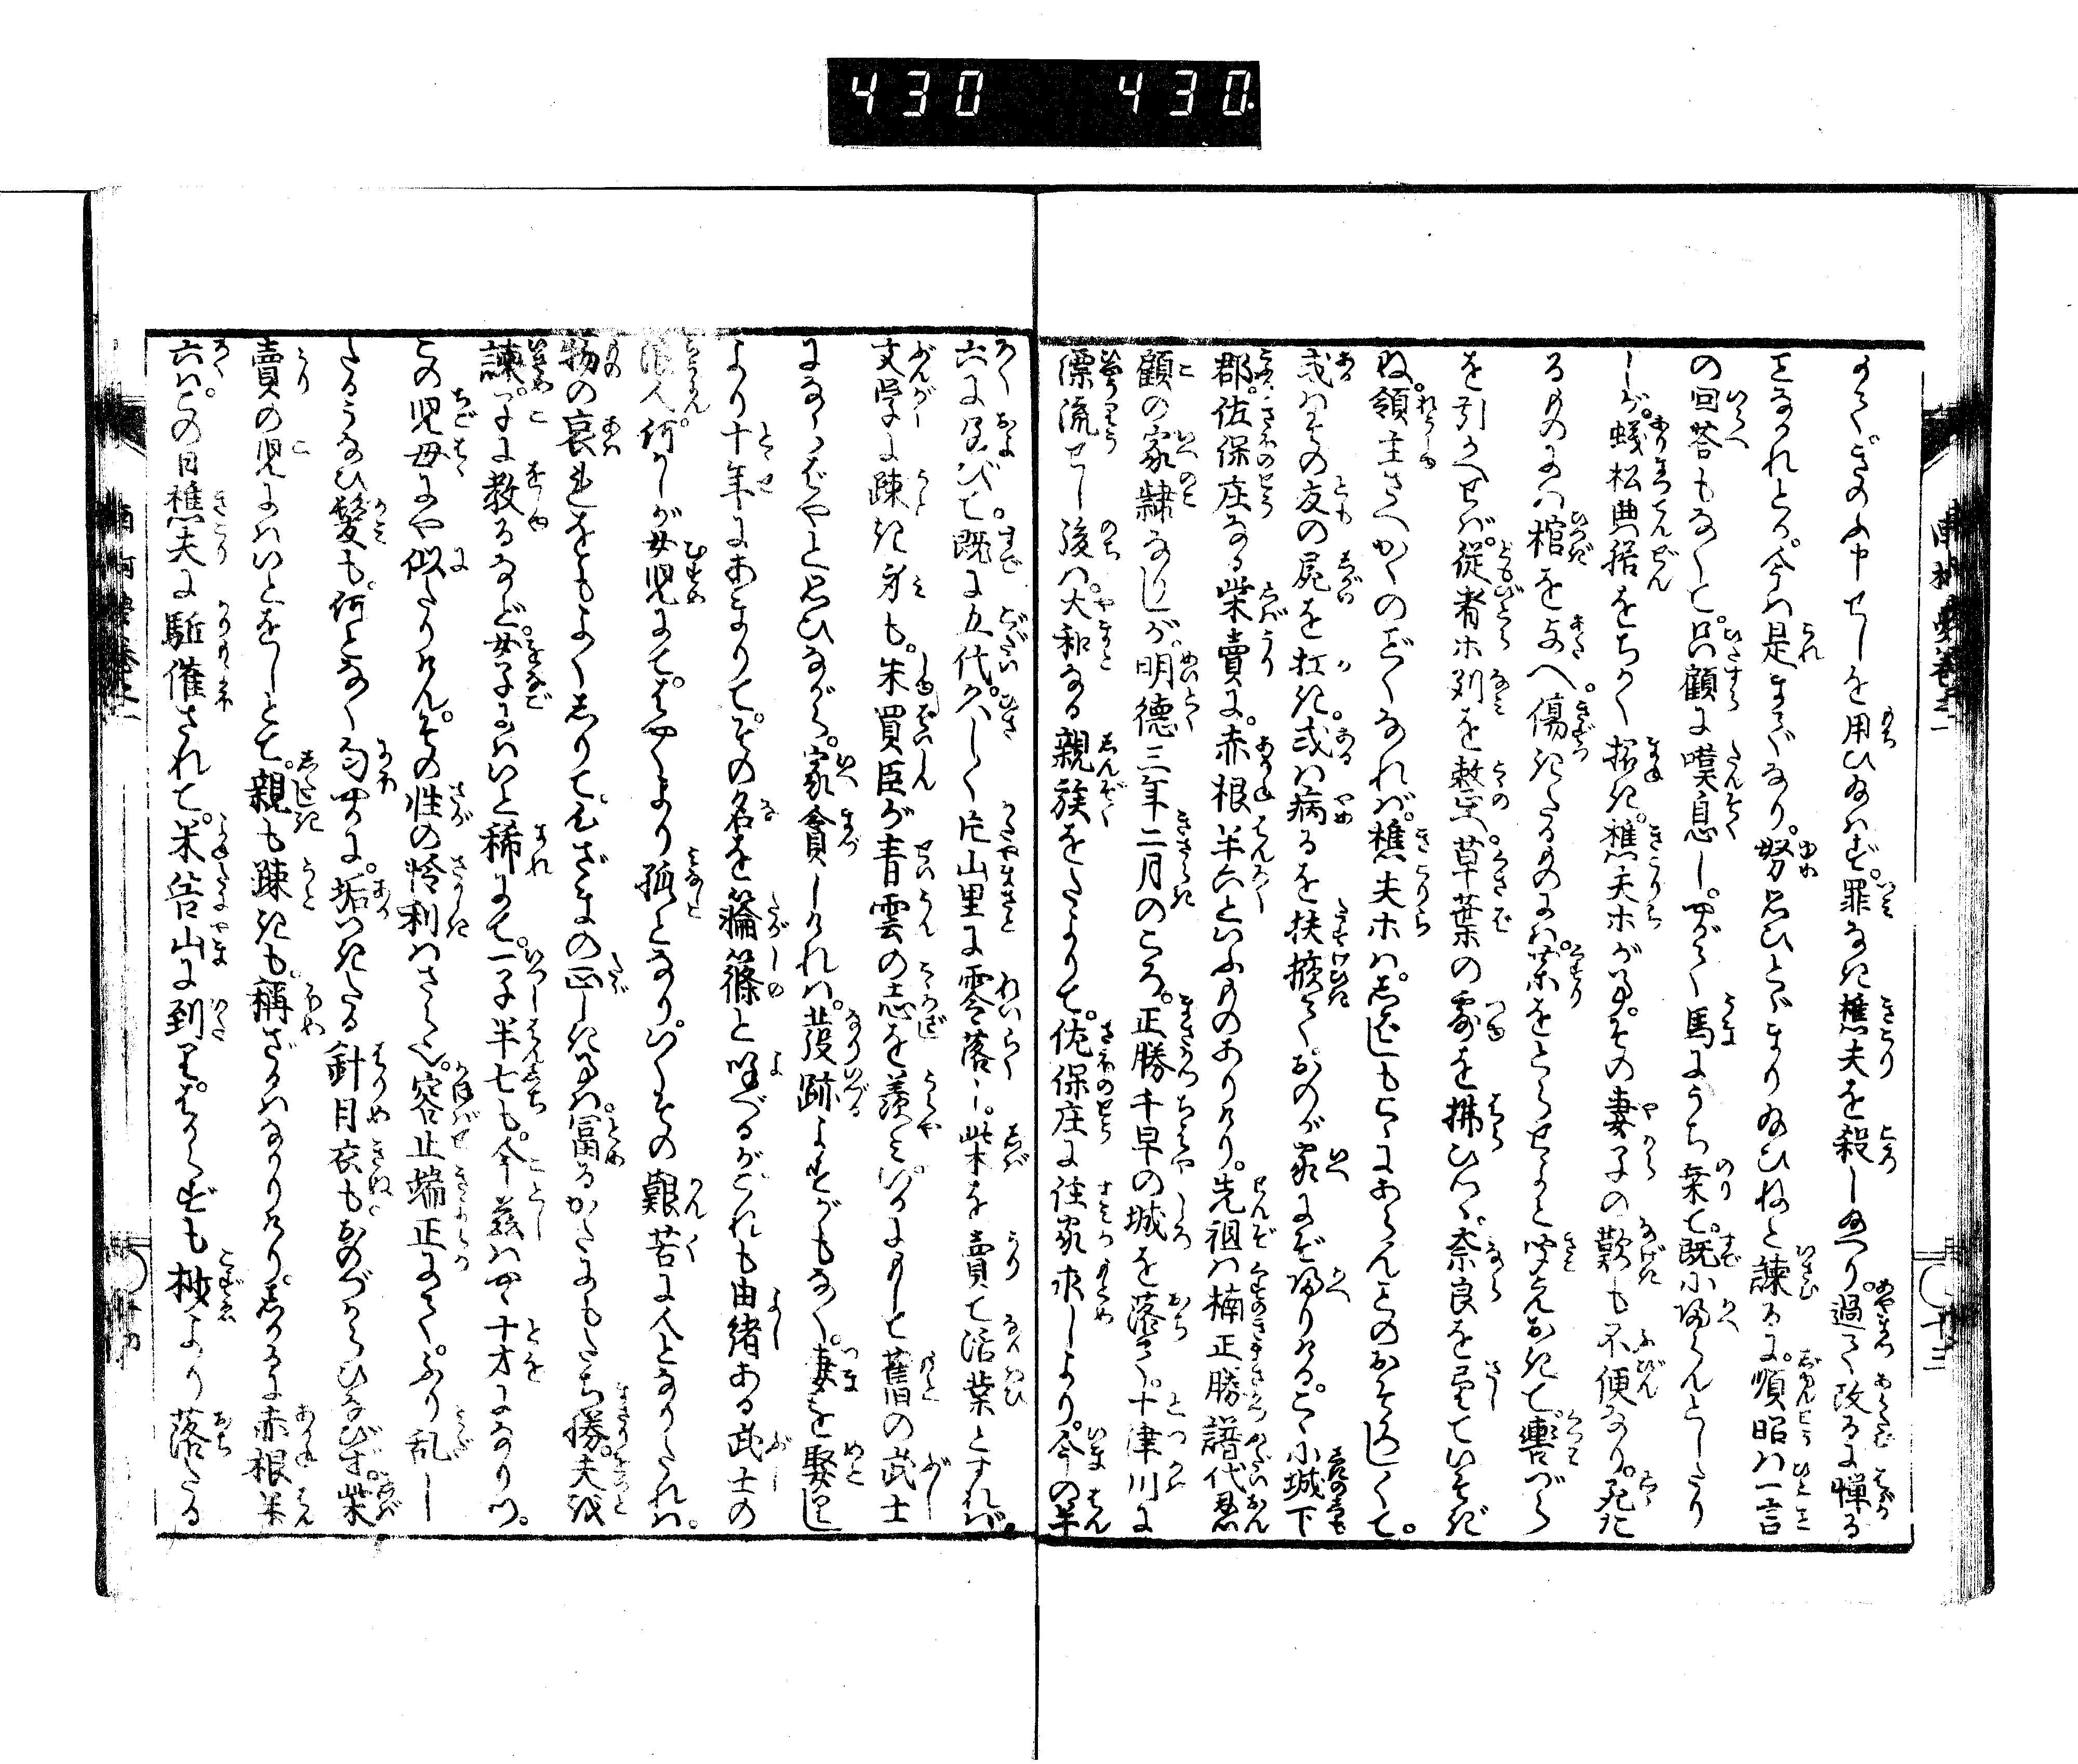 430 430.
某がきのふ申せしを用ひ給はず。罪なき樵夫を殺し給へり。過て改るに憚る
ことなかれとぞ。今は是までなり。努思ひとゞまり給ひねと諫るに。順昭は一言
の回答もなくて。只顧に嘆息し。やがて馬にうち乗て。既に帰らんとしたり
しが。蟻松典膳をちかく招き。樵夫ホが事。その妻子の歎も不便なり。死た
るものには棺を与へ。傷きたるものには薬をとらせよと聞えおきて。轡づら
を引かへせば。従者ホ列を整へ。草葉の露を拂ひつゝ。奈良を望ていそぎ
ぬ。領主さへかくのごとくなれば。樵夫ホは忽地もこゝにあらんことのおそろしくて。
或はその友の屍を扛き。或は病るを扶掖て。おのが家にぞ帰りける。こゝに城下
郡。佐保庄なる柴賣に。赤根半六といふものありけり。先祖は楠正勝譜代恩
顧の家隷なりしが。明徳三年二月のころ。正勝千早の城を落て。十津川に
漂流せし後は。大和なる親族をたよりて。佐保庄に住家求しより。今の半
六に及びて。既に五代久しく片山里に零落し。柴を賣て活業とすれば。
文学に疎き身も。朱買臣が青雲の志を羨み。いかにもしと舊の武士
にならばやと思ひながら。家貧しければ。發跡よすがもなく。妻を娶りし
より十年にあまりて。その名を簫篠と喚べるが。これも由緒ある武士の
浪人何がしが女児にて。はやくより孤となり。いくその艱苦に人となりたれば。
物の哀をもよくしりて。心ざまの正しき事は。冨るかたにもたち勝。夫を
諫。子に教るなど。女子にはいと稀にて。一子半七も。今茲は十才になりつ。
この児母にや似たりけん。その性の怜利はさら也。容止端正にて。ふり乱し
たるうなひ髪も。何となく匂やかに。垢つきたる針目衣もおのづからひなびず。柴
賣の児にはいとをしとて。親も疎きも。稱ざるはなかりけり。しかるに赤根半
六は。この日樵夫に駈催されて。米谷山に到り。はからずも杪より落たる